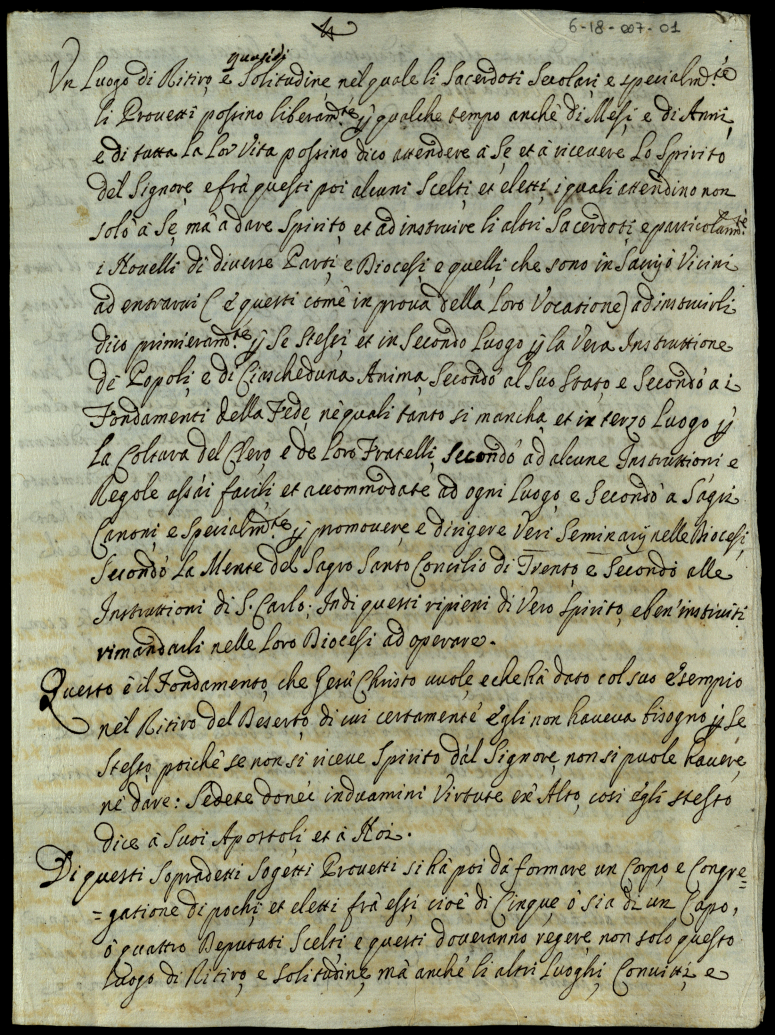 6-18-007-01
quasi di
Un Luogo di Ritiro, e Solitudine nel quale li Sacerdoti Secolari, e specialm.te
li Provetti possino liberam.te p qualche tempo anche di Mesi, e di Anni,
e di tutta la Lor Vita possino dico attendere à Se, et à ricevere Lo Spirito
del Signore, e frà questi poi alcuni Scelti, et eletti, i quali attendino non
solo à Se, mà à dare Spirito, et ad instruire li altri Sacerdoti, e particolarm.te
i Novelli di diverse Parti, e Diocesi, e quelli, che sono in Sacris ò Vicini
ad entrarvi (e questi come in prova della Loro Vocatione) ad instruirli
dico primieram.te p Se Stessi, et in Secondo Luogo p la Vera Instruttione
de Popoli, e di Ciascheduna Anima, Secondo al Suo Stato, e Secondo a i
Fondamenti della Fede, ne quali tanto si mancha, et in terzo Luogo p
La Coltura del Clero, e de Loro Fratelli, secondo ad alcune Instruttioni, e
Regole assai facili, et accommodate ad ogni Luogo, e Secondo a Sagri
Canoni, e specialm.te p promovere, e dirigere Veri Seminarij nelle Diocesi,
Secondo La Mente del Sagro Santo Concilio di Trento, e Secondo alle
Instruttioni di S. Carlo; Indi questi ripieni di Vero Spirito, e ben' instruiti
rimandarli nelle Loro Diocesi ad operare.
Questo è il Fondamento, che Gesù Christo vuole, e che hà dato col suo esempio
nel Ritiro del Deserto, di cui certamente Egli non haveva bisogno p Se
Stesso, poichè se non si riceve Spirito dal Signore, non si puole havere,
ne dare: Sedete donec induamini Virtute ex Alto, così egli stesso
dice à Suoi Apostoli, et à Noi.
Di questi Sopradetti Sogetti Provetti si hà poi dà formare un Corpo, e Congre=
=gatione di pochi, et eletti frà essi, cioè di Cinque, ò sia di un Capo,
ò quattro Deputati Scelti, e questi doveranno regere, non solo questo
Luogo di Ritiro, e Solitudine, mà anche li altri Luoghi, Convitti, e